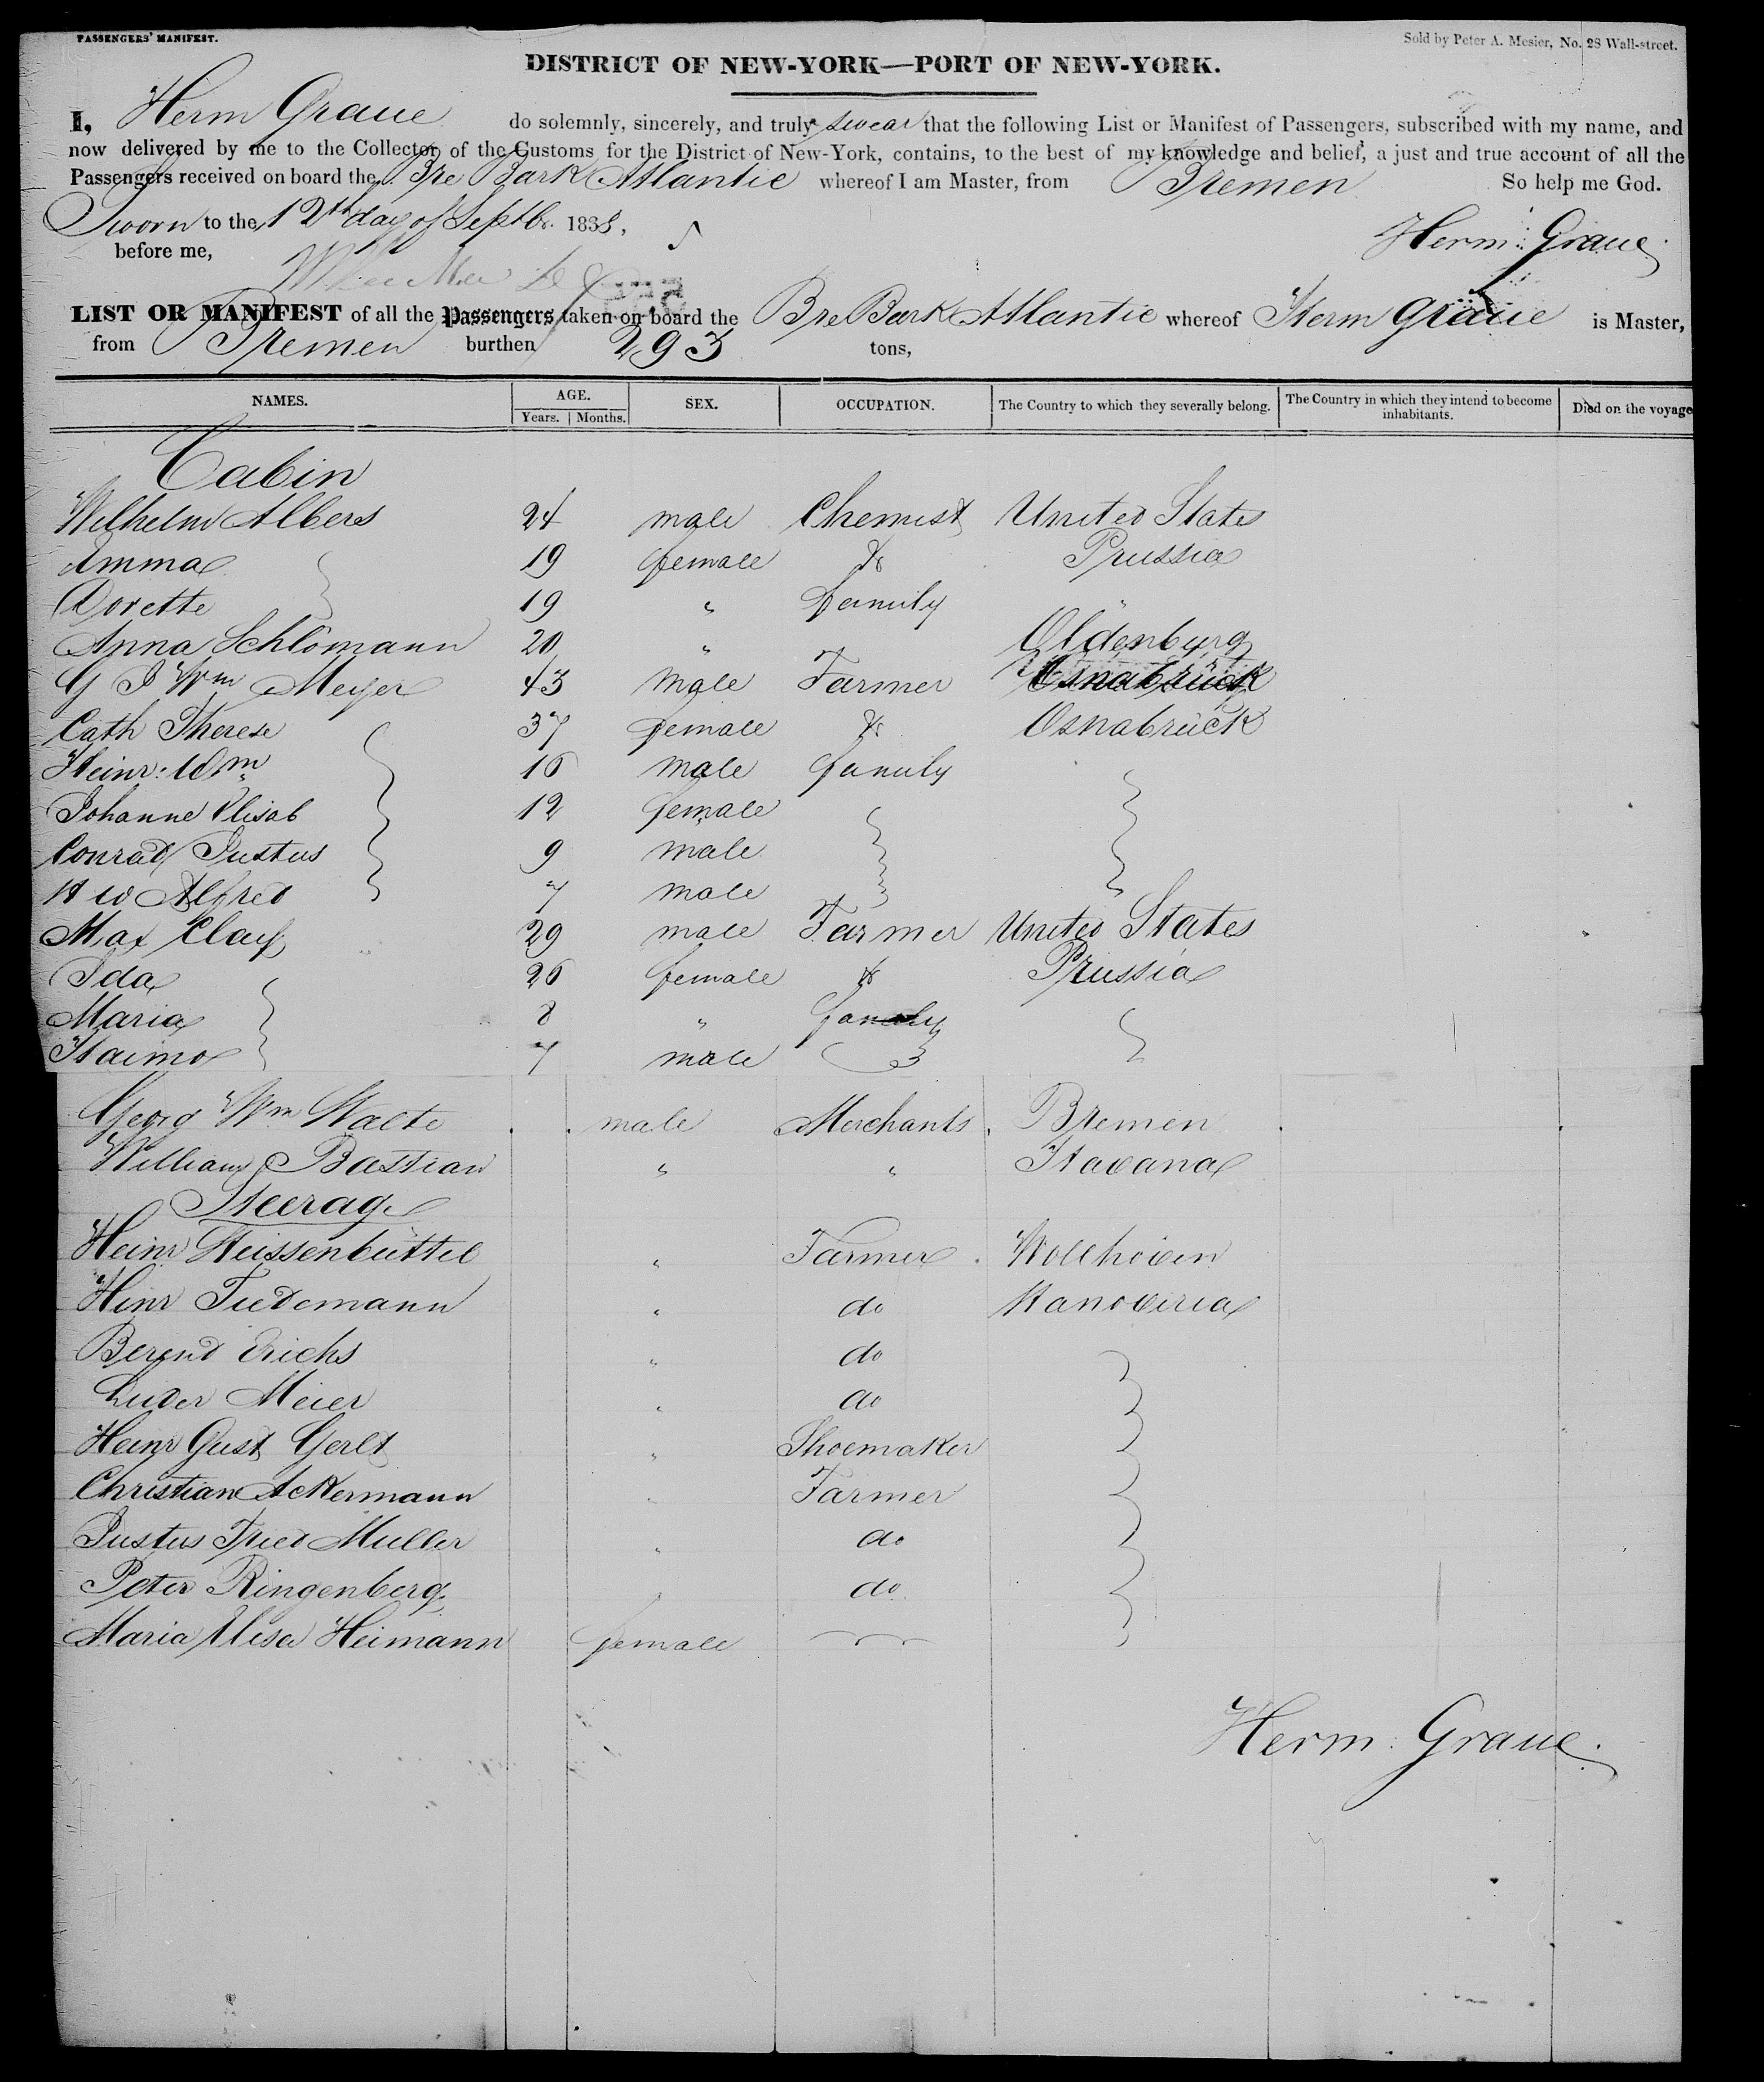 PASSENGERS' MANIFEST.
Sold by Peter A. Mesier, No. 28 Wall-street.
DISTRICT OF NEW-YORK—PORT OF NEW-YORK.
I, Herm Graue do solemnly, sincerely, and truly swear that the following List or Manifest of Passengers, subscribed with my name, and
now delivered by me to the Collector of the Customs for the District of New-York, contains, to the best of my knowledge and belief, a just and true account of all the
Passengers received on board the Bre Bark Atlantic whereof I am Master, from Bremen So help me God.
Sworn to the 12th day of Septb. 1838,
Herm: Graue
before me,
LIST OR MANIFEST of all the Passengers taken on board the Bre Bark Atlantic whereof Herm Graue is Master,
from Bremen burthen 293 tons,
NAMES. AGE. SEX. OCCUPATION. The Country to which they severally belong. The Country in which they intend to become inhabitants. Died on the voyage
Years. Months.
Cabin
Wilhelm Albers 24 male Chemist United States
Emma 19 female & Prussia
Dorette 19 " family "
Anna Schlömann 20 " Oldenburg
G J Wm Meyer 43 male Farmer Osnabrück
Cath Therese 37 female & Osnabrück
Heinr: Wm 16 male family
Johanne Elisab 12 female
Conrad Justus 9 male
H W Alfred 7 male
Max Clay 29 male Farmer United States
Ida 26 female & Prussia
Maria 8 " family
Haimo 7 male
Georg Wm Walte male Merchants Bremen
William Bastian " " Havana
Steerage
Heinr Weissenbüttel " Farmer Wollhöven
Hinr Tiedemann " do Hanoveria
Berend Erichs " do
Luder Meier " do
Heinr Gust Gerlt " Shoemaker
Christian Ackermann " Farmer
Justus Fried Muller " do
Peter Ringenberg " do
Maria Elisa Heimann female
Herm: Graue.